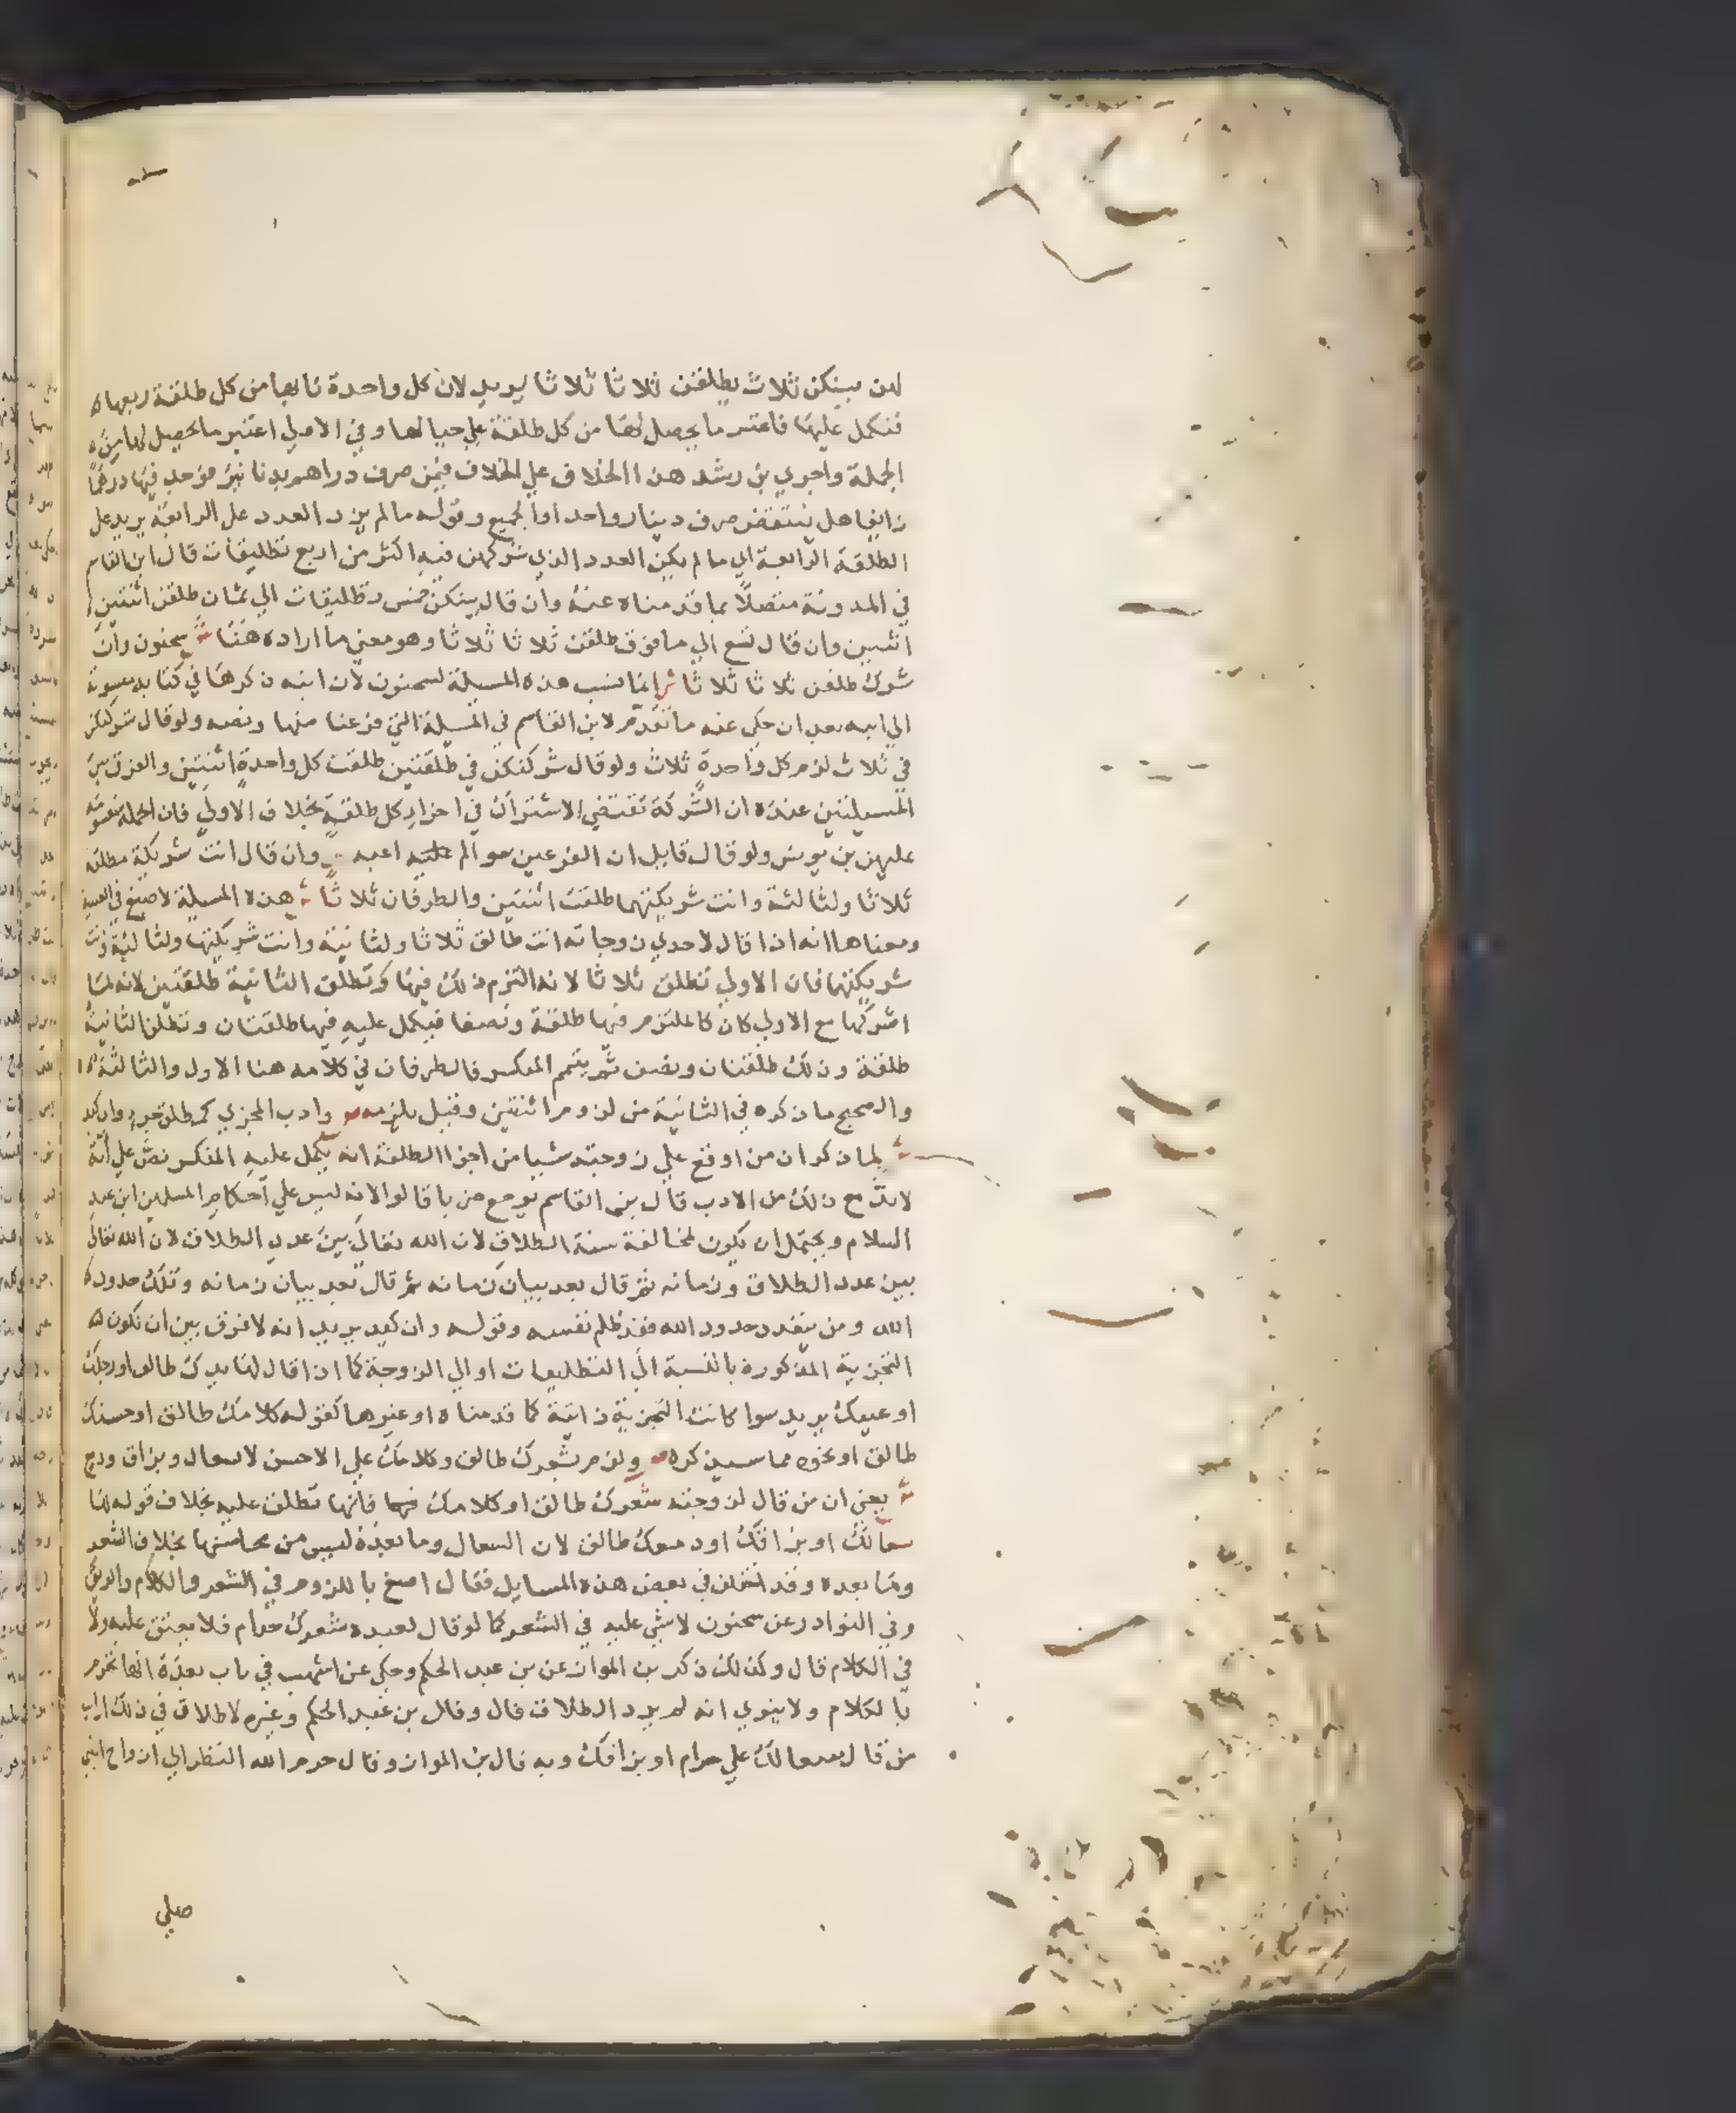 لهن بينكن ثلاث يطلقن ثلاثا ثلاثا يريد لان كل واحدة نابها من كل طلقة ربعها ه
فتكمل عليها فاعتبر ما يحصل لها من كل طلقة علي حيالها وفي الاولي اعتبر ما يحصل لها من ه
الجملة واجري بن رشد هذا الخلاف علي الخلاف فيمن صرف دراهم بدنانير فوجد فيها درهما
زايفا هل ينتقض صرف دينار واحد او الجميع وقوله ما لم يزد العدد علي الرابعة يريد علي
الطلقة الرابعة اي ما لم يكن العدد الذي شركهن فيه اكثر من اربع تطليقات قال ابن القاسم
في المدونة متصلا بما قدمناه عنه وان قال بينكن خمس تطليقات الي ثمان طلقن اثنتين
اثنتين وان قال تسع الي ما فوق طلقن ثلاثا ثلاثا وهو معني ما اراده هنا ش سحنون وان
شرك طلقن ثلاثا ثلاثا ش انما نسب هذه المسيلة لسحنون لان ابنه ذكرها في كتابه منسوبة
الي ابيه بعد ان حكي عنه ما تقدم لابن القاسم في المسيلة التي فرغنا منها ونصه ولو قال شركتكن
في ثلاث لزم كل واحدة ثلاث ولو قال شركتكن في طلقتين طلقت كل واحدة اثنتين والفرق بين
المسيلتين عنده ان الشركة تقتضي الاشتراك في اجزاء كل طلقة بخلاف الاولي فان الجملة مقسومة
عليهن بن يونس ولو قال قايل ان الفرعين سوا لم اعبه وان قال انت شريكة مطلقة
ثلاثا ولثالثة وانت شريكتهما طلقت اثنتين والطرفان ثلاثا ش هذه المسيلة لاصبغ في العتبية
ومعناها انه اذا قال لاحدي زوجاته انت طالق ثلاثا ولثانية وانت شريكتها ولثالثة وانت
شريكتهما فان الاولي تطلق ثلاثا لانه التزم ذلك فيها وتطلق الثانية طلقتين لانه لما
اشركها مع الاولي كان كالملتزم فيها طلقة ونصفا فيكمل عليه فيها طلقتان وتطلق الثانية
طلقة وذلك طلقتان ونصف ثم يتمم المنكسر فالطرفان في كلامه هنا الاول والثالثة ه ا
والصحيح ما ذكره في الثانية من لزوم اثنتين وقيل يلزمه ص وادب المجزي كمطلق جزء وان كيد
ش لما ذكر ان من اوقع علي زوجته شيا من اجزا الطلقة انه يكمل عليه المنكسر نص علي انه
لابد مع ذلك من الادب قال بن القاسم يوجع من با قالوا لانه ليس علي احكام المسلمين ابن عبد
السلام ويحتمل ان يكون لمخالفة سنة الطلاق لان الله تعالي بين عدد الطلاق لان الله تعالي
بين عدد الطلاق وزمانه ثم قال بعد بيان زمانه ثم قال بعد بيان زمانه وتلك حدود ه
الله ومن يتعد حدود الله فقد ظلم نفسه وقوله وان كيد يريد انه لا فرق بين ان تكون ه
التجزية المذكورة بالنسبة الي التطليقات او الي الزوجة كما اذا قال لها يدك طالق او رجلك
او عينك يريد سوا كانت التجزية ذاتية كما قدمناه او غيرها كقوله كلامك طالق او حسنك
طالق او نحوه مما سيذكره ص ولزم بشعرك طالق وكلامك علي الاحسن لا بسعال وبزاق ودمع
ش يعني ان من قال لزوجته شعرك طالق او كلامك فانها تطلق عليه بخلاف قوله لها
سعالك او بزاقك او دمعك طالق لان السعال وما بعده ليس من محاسنها بخلاف الشعر
وما بعده وقد اختلف في بعض هذه المسايل فقال اصبغ باللزوم في الشعر والكلام والريق
وفي النوادر عن سحنون لا شي عليه في الشعر كما لو قال لعبده شعرك حرام فلا يعتق عليه ولا
في الكلام قال وكذلك ذكر بن المواز عن بن عبد الحكم وحكي عن اشهب في باب بعده انها تحرم
بالكلام ولا ينوي انه لم يرد الطلاق قال وقال بن عبد الحكم وغيره لا طلاق في ذلك ارايت
من قال سعالك علي حرام او بزاقك وبه قال بن المواز وقال حرم الله النظر الي ازواج النبي
صلي